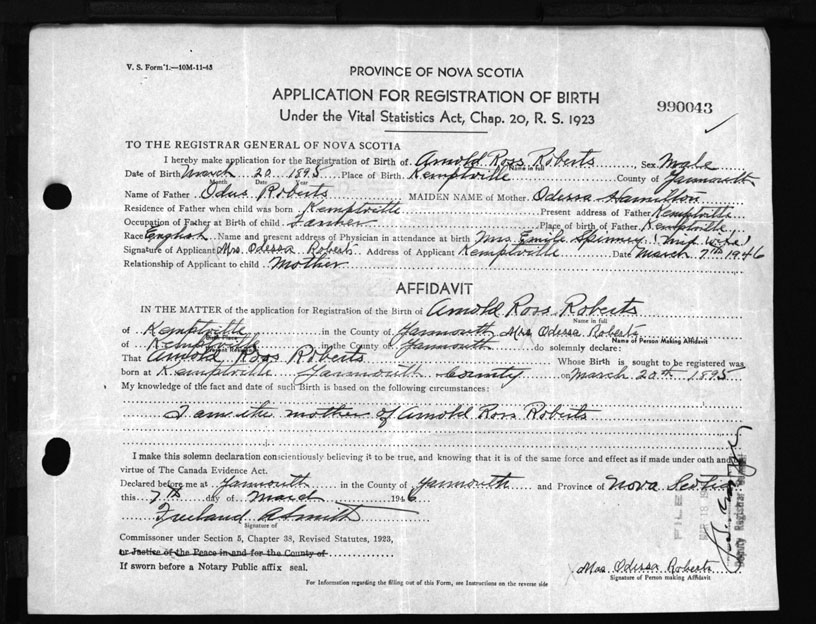 V. S. Form 1.—10M-11-43
PROVINCE OF NOVA SCOTIA
APPLICATION FOR REGISTRATION OF BIRTH
990043
Under the Vital Statistics Act, Chap. 20, R. S. 1923
TO THE REGISTRAR GENERAL OF NOVA SCOTIA
I hereby make application for the Registration of Birth of Arnold Ross Roberts, Sex Male
Name in full
Date of Birth March 20 1895 Place of Birth Kemptville County of Yarmouth
Month Date Year
Name of Father Odus Roberts MAIDEN NAME of Mother Odessa Hamilton
Residence of Father when child was born Kemptville Present address of Father Kemptville
Occupation of Father at Birth of child Place of birth of Father Kemptville,
Race English Name and present address of Physician in attendance at birth Mrs Emily Spinney (Mid Wife)
Signature of Applicant Mrs. Odessa Roberts Address of Applicant Kemptville Date March 7th 1946
Relationship of Applicant to child Mother
AFFIDAVIT
IN THE MATTER of the application for Registration of the Birth of Arnold Ross Roberts
Name in full
of Kemptville in the County of Yarmouth Mrs Odessa Roberts
Birth Place
Name of Person Making Affidavit
of Kemptville in the County of Yarmouth do solemnly declare:
That Arnold Ross Roberts Whose Birth is sought to be registered was
born at Kemptville Yarmouth County on March 20th 1895
My knowledge of the fact and date of such Birth is based on the following circumstances:
I am the mother of Arnold Ross Roberts
I make this solemn declaration conscientiously believing it to be true, and knowing that it is of the same force and effect as if made under oath and
virtue of The Canada Evidence Act.
Declared before me at Yarmouth in the County of Yarmouth and Province of Nova Scotia
this 7th day of March 1946
Freeland Smith
Signature of
Commissoner under Section 5, Chapter 38, Revised Statutes, 1923,
or Justice of the Peace in and for the County of
If sworn before a Notary Public affix seal.
Mrs. Odessa Roberts
Signature of Person making Affidavit
For Information regarding the filling out of this Form, see Instructions on the reverse side
FILED
Deputy Registrar